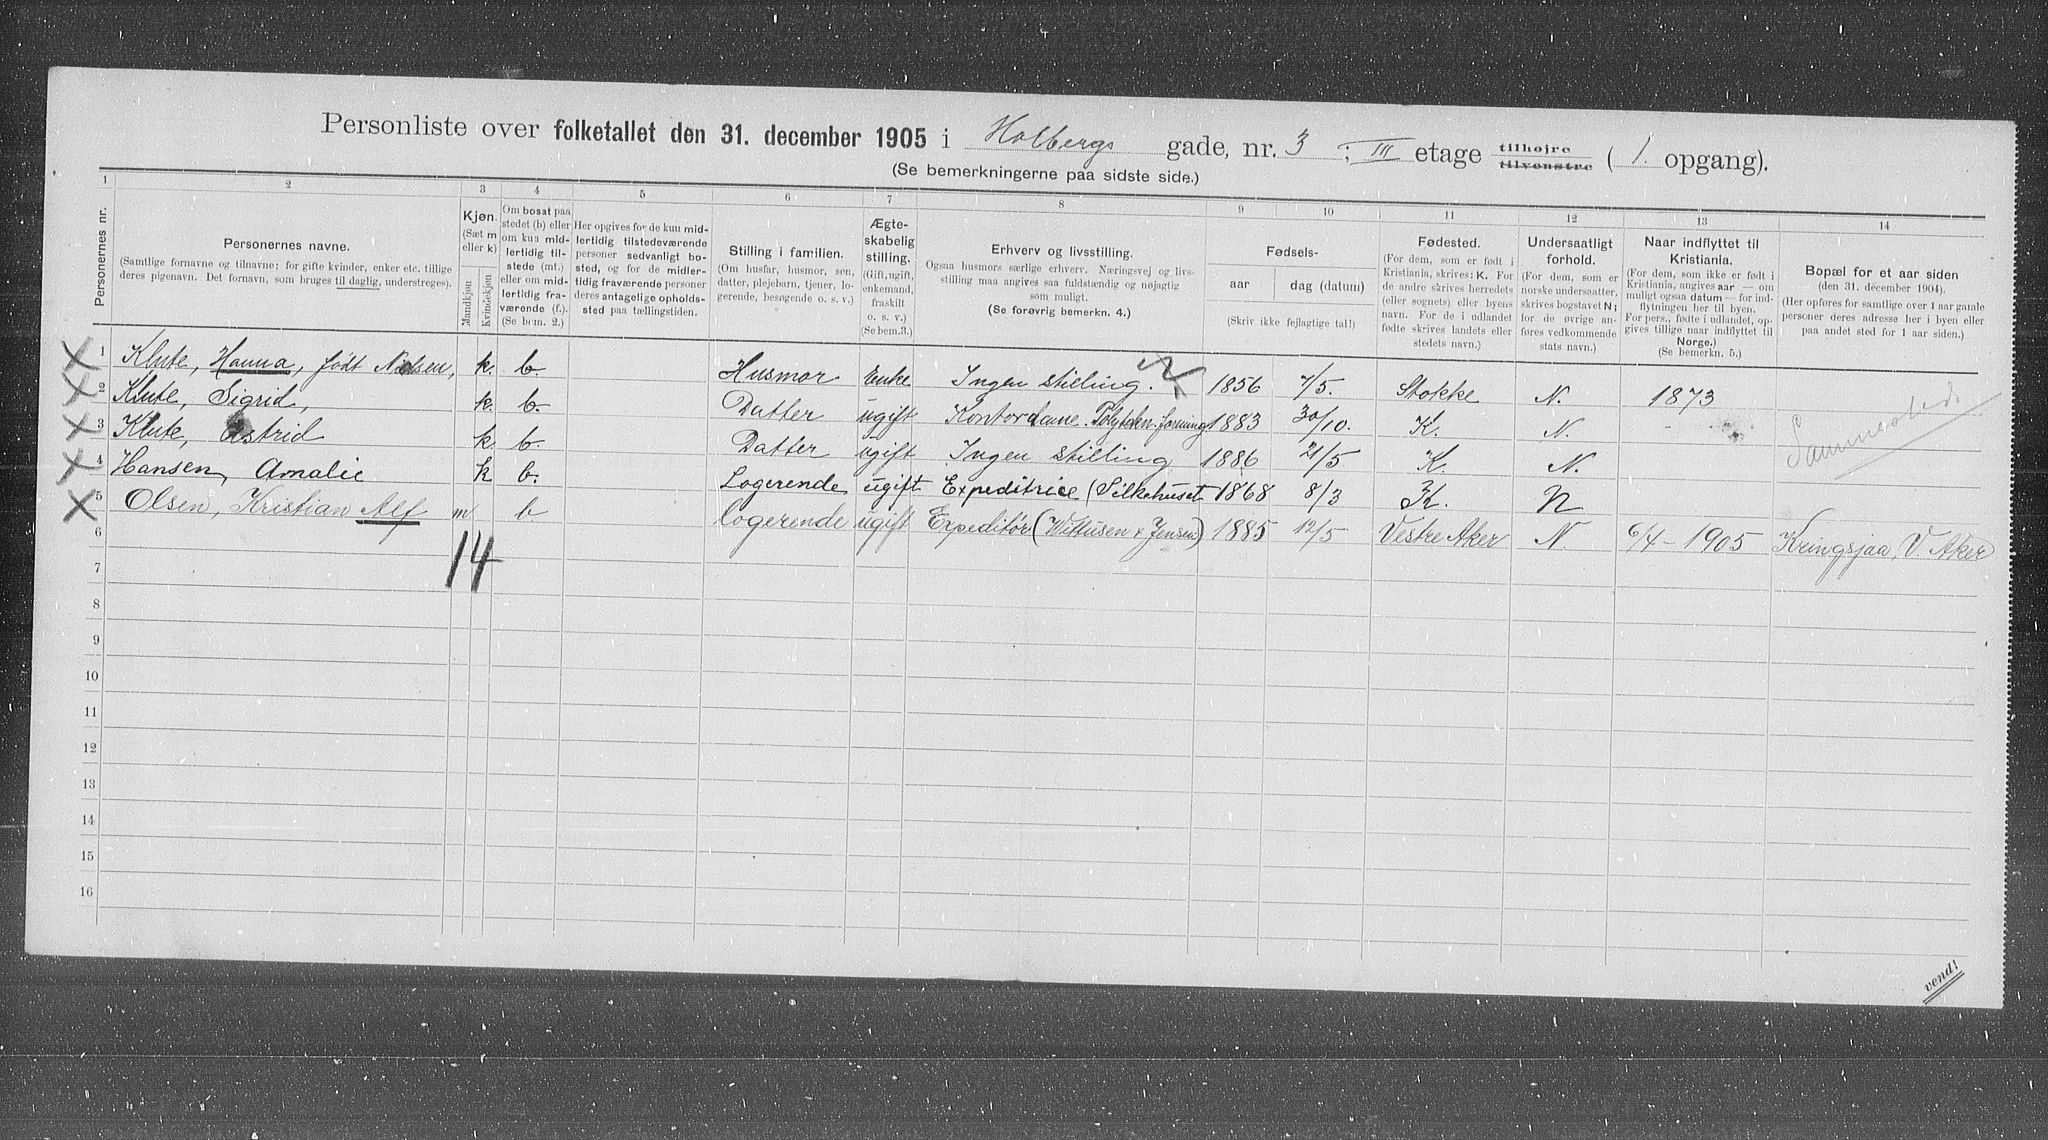 Personliste over folketallet den 31. december 1905 i Holbergs gade, nr. 3 ; III etage tilhøjre tilvenstre ( 1. opgang).
(Se bemerkningerne paa sidste side.)
1 2 3 4 5 6 7 8 9 10 11 12 13 14
Personernes nr.
Personernes navne.
(Samtlige fornavne og tilnavne; for gifte kvinder, enker etc. tillige
deres pigenavn. Det fornavn, som bruges til daglig, understreges).
Kjøn.
(Sæt m
eller k)
Mandkjøn
Kvindekjøn
Om bosat paa
stedet (b) eller
om kun mid-
lertidig til-
stede (mt.)
eller om mid-
lertidig fra-
værende (f.).
(Se bem. 2.)
Her opgives for de kun mid-
lertidig tilstedeværende
personer sedvanligt bo-
sted, og for de midler-
tidig fraværende personer
deres antagelige opholds-
sted paa tællingstiden.
Stilling i familien.
(Om husfar, husmor, søn,
datter, plejebarn, tjener, lo-
gerende, besøgende o. s. v.)
Ægte-
skabelig
stilling.
(Gift, ugift,
enkemand,
fraskilt
o. s. v.)
(Se bem.3.)
Erhverv og livsstilling.
Ogsaa husmors særlige erhverv. Næringsvej og livs-
stilling maa angives saa fuldstændig og nøjagtig
som muligt.
(Se forøvrig bemerkn. 4.)
Fødsels-
aar dag (datum)
(Skriv ikke fejlagtige tal!)
Fødested.
(For dem, som er født i
Kristiania, skrives: K. For
de andre skrives herredets
(eller sognets) eller byens
navn. For de i udlandet
fødte skrives landets eller
stedets navn.)
Undersaatligt
forhold.
(For dem, som er
norske undersaatter,
skrives bogstavet N;
for de øvrige an-
føres vedkommende
stats navn.)
Naar indflyttet til
Kristiania.
(For dem, som ikke er født i
Kristiania, angives aar — om
muligt ogsaa datum — for ind-
flytningen her til byen.
For pers., fødte i udlandet, op-
gives tillige naar indflyttet til
Norge.)
(Se bemerkn. 5.)
Bopæl for et aar siden
(den 31. december 1904).
(Her opføres for samtlige over 1 aar gamle
personer deres adresse her i byen eller
paa andet sted for 1 aar siden.)
1 Klute, Hanna, født Nielsen, k. b. Husmor Enke Ingen stilling. 1856 7/5. Stokke N. 1873
2 Klute, Sigrid, k. b. Datter ugift Kontordame. Polytekn. forening 1883 30/10. K. N.
3 Klute, Astrid k b. Datter ugift Ingen stilling 1886 21/5 K. N. Sammesteds.
4 Hansen, Amalie k b. Logerende ugift Expeditrice (Silkehuset 1868 8/3 K. N
5 Olsen, Kristian Alf m b logerende ugift Expeditør (Wittusen & Jensen) 1885 12/5 Vestre Aker N. 6/4 - 1905 Kringsjaa, V. Aker
6
14
7
8
9
10
11
12
13
14
15
16
vend!